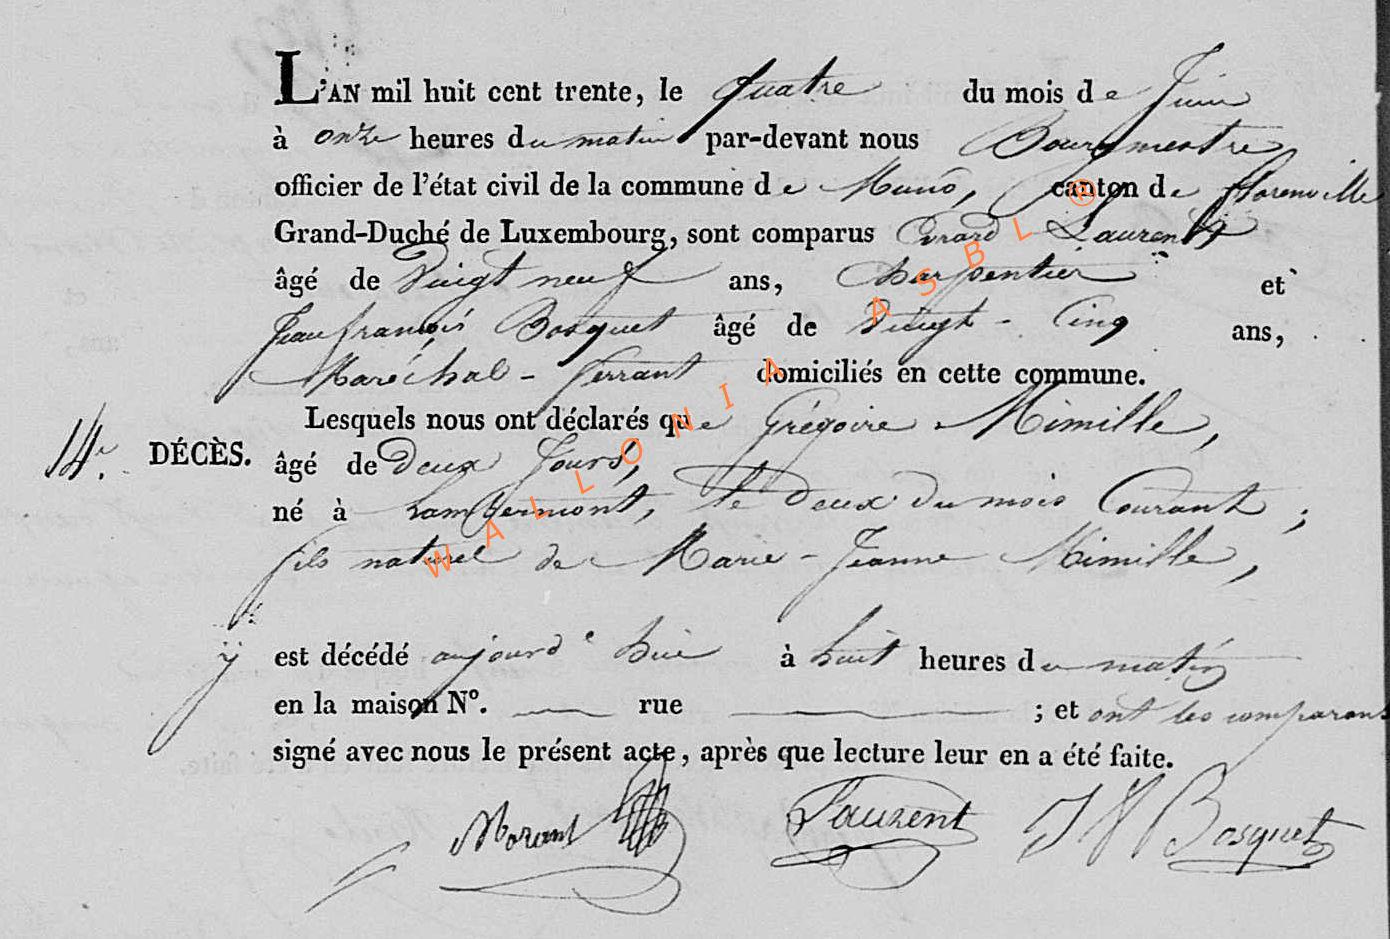 L'AN mil huit cent trente, le quatre du mois de Juin
à onze heures du matin par-devant nous Bourgmestre
officier de l'état civil de la commune de Muno, canton de florenville
Grand-Duché de Luxembourg, sont comparus Evrard Laurent
âgé de Vingt neuf ans, Charpentier et
Jean françois Bosquet âgé de Vingt-Cinq ans,
Maréchal-ferrant domiciliés en cette commune.
Lesquels nous ont déclarés que Grégoire Mimille,
14e. DÉCÈS. âgé de Deux Jours,
né à Lambermont, le deux du mois Courant;
fils naturel de Marie-Jeanne Mimille,
ÿ est décédé aujourd'hui à huit heures du matin
en la maison N°. rue ; et ont les comparans
signé avec nous le présent acte, après que lecture leur en a été faite.
Laurent J f Bosquet
WALLONIA ASBL ®